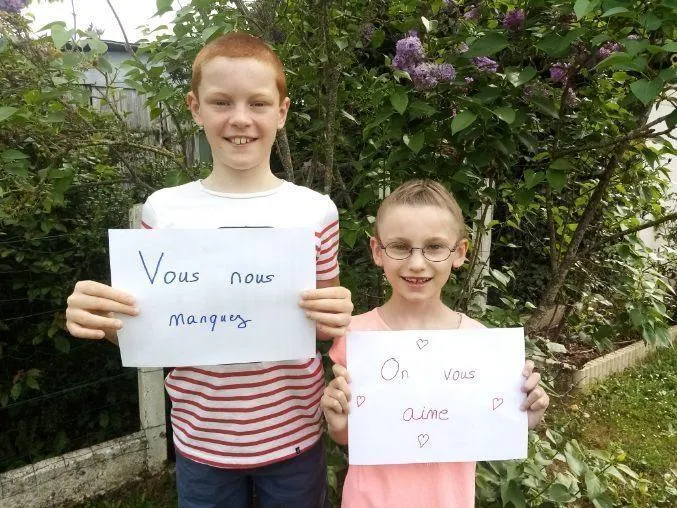 Vous nous
manquez
On vous
aime